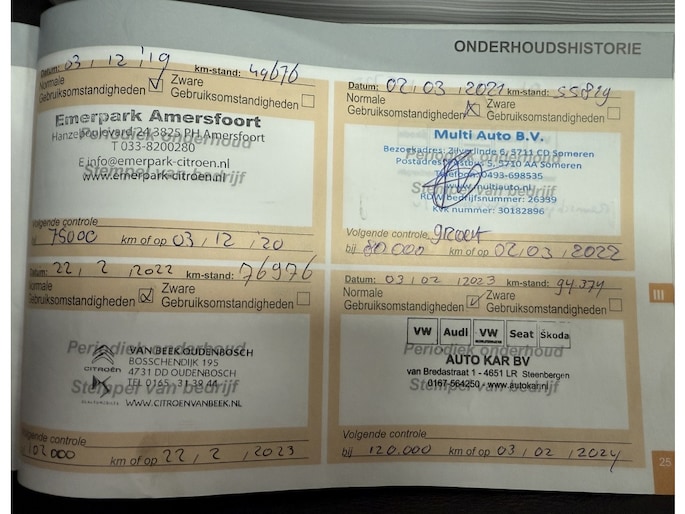 ONDERHOUDSHISTORIE
Datum: 03 / 12 / '19 km-stand: 49676
Normale Gebruiksomstandigheden ☑ Zware Gebruiksomstandigheden ☐
Periodiek onderhoud
Stempel van bedrijf
Emerpark Amersfoort
Hanzeboulevard 24 3825 PH Amersfoort
T 033-8200280
E info@emerpark-citroen.nl
www.emerpark-citroen.nl
Volgende controle
bij 75000 km of op 03 / 12 / 20
Datum: 02 / 03 / 2021 km-stand: 55819
Normale Gebruiksomstandigheden ☒ Zware Gebruiksomstandigheden ☐
Periodiek onderhoud
Stempel van bedrijf
Multi Auto B.V.
Bezoekadres: Zilverlinde 6, 5711 CD Someren
Postadres: Postbus 5, 5710 AA Someren
Telefoon: 0493-698535
www.multiauto.nl
RDW bedrijfsnummer: 26339
KvK nummer: 30182896
Volgende controle groot
bij 80.000 km of op 02 / 03 / 2022
Datum: 22 / 2 / 2022 km-stand: 76976
Normale Gebruiksomstandigheden ☒ Zware Gebruiksomstandigheden ☐
Periodiek onderhoud
Stempel van bedrijf
CITROËN
VAN BEEK OUDENBOSCH
BOSSCHENDIJK 195
4731 DD OUDENBOSCH
TEL 0165 31 39 44
WWW.CITROENVANBEEK.NL
Volgende controle
bij 102000 km of op 22 / 2 / 2023
Datum: 03 / 02 / 2023 km-stand: 94.374
Normale Gebruiksomstandigheden ☑ Zware Gebruiksomstandigheden ☐
Periodiek onderhoud
Stempel van bedrijf
VW Audi VW Seat Škoda
AUTO KAR BV
van Bredastraat 1 - 4651 LR Steenbergen
0167-564250 - www.autokar.nl
Volgende controle
bij 120.000 km of op 03 / 02 / 2024
III
25